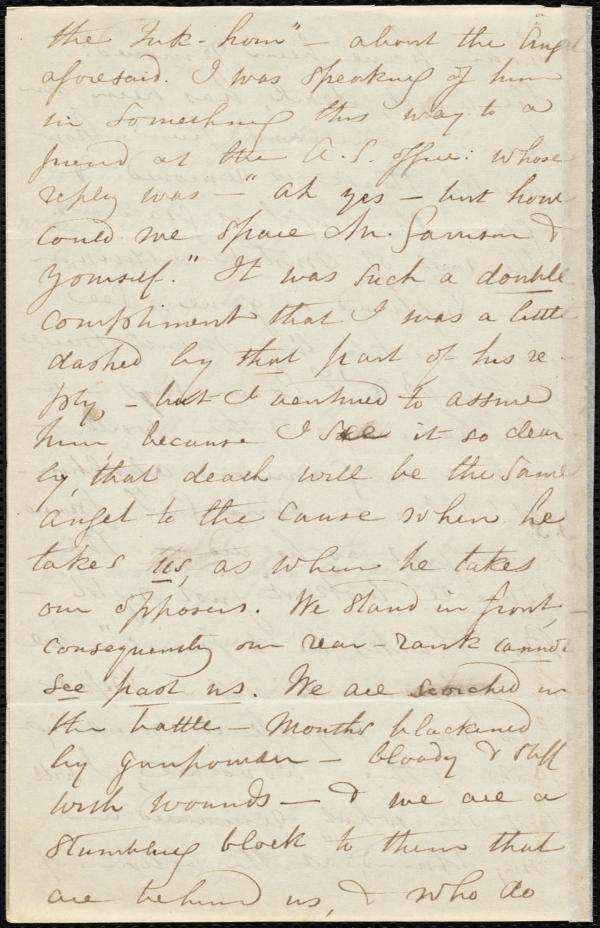 the Ink-horn" - about the Angel
aforesaid. I was speaking of him
in something this way to a
friend at the A.S. office: whose
reply was - "ah yes - but how
could we spare Mr. Garrison &
yourself." It was such a double
compliment that I was a little
dashed by that part of his re-
ply, - but I ventured to assure
him, because I see it so clear
ly, that death will be the same
angel to the cause when he
takes us, as when he takes
our opposers. We stand in front,
consequently our rear-rank cannot
see past us. We are scorched in
the battle - Mouths blackened
by gunpowder - bloody & stiff
with wounds - & we are a
stumbling block to them that
are behind us, & who do